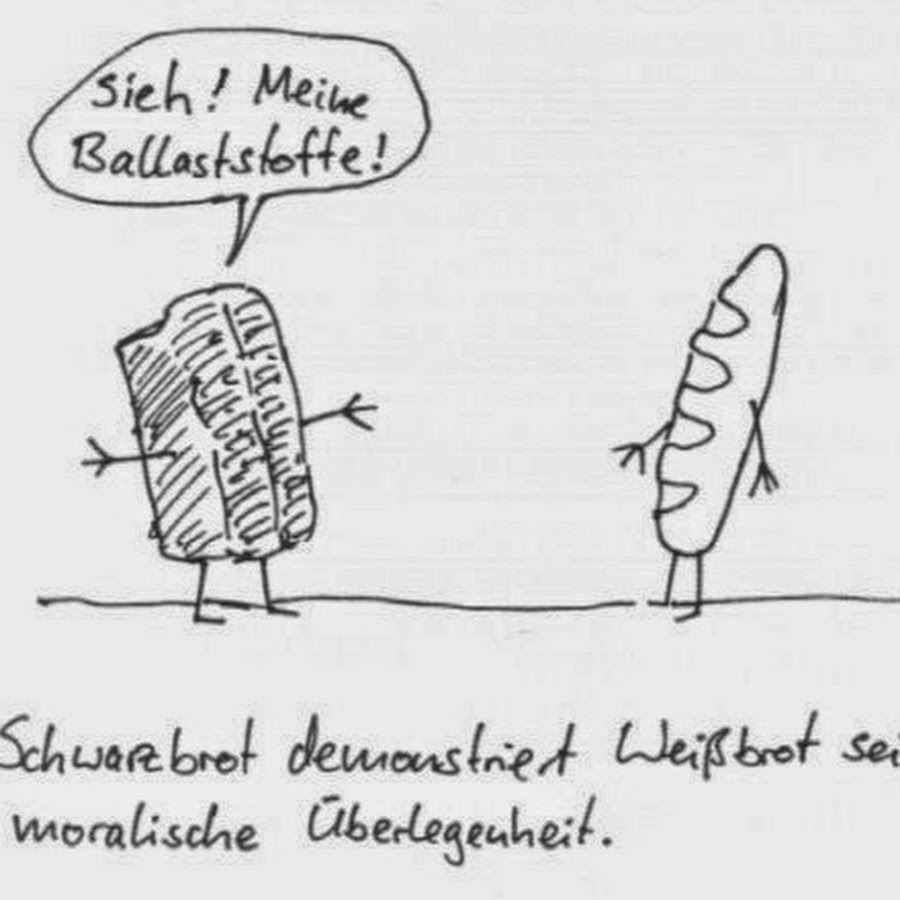 Sieh! Meine
Ballaststoffe!
Schwarzbrot demonstriert Weißbrot sei
moralische Überlegenheit.